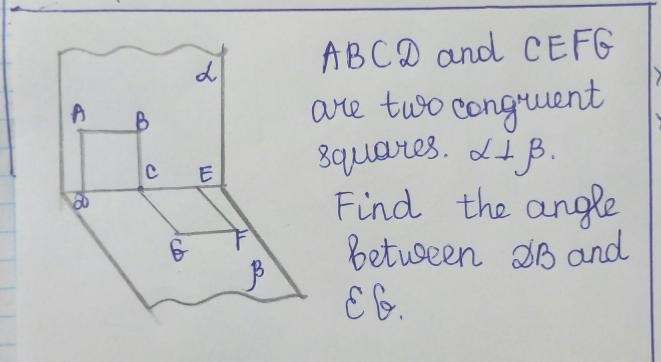 α
A B
C E
D
G F
β
ABCD and CEFG
are two congruent
squares. α⊥β.
Find the angle
between DB and
EG.